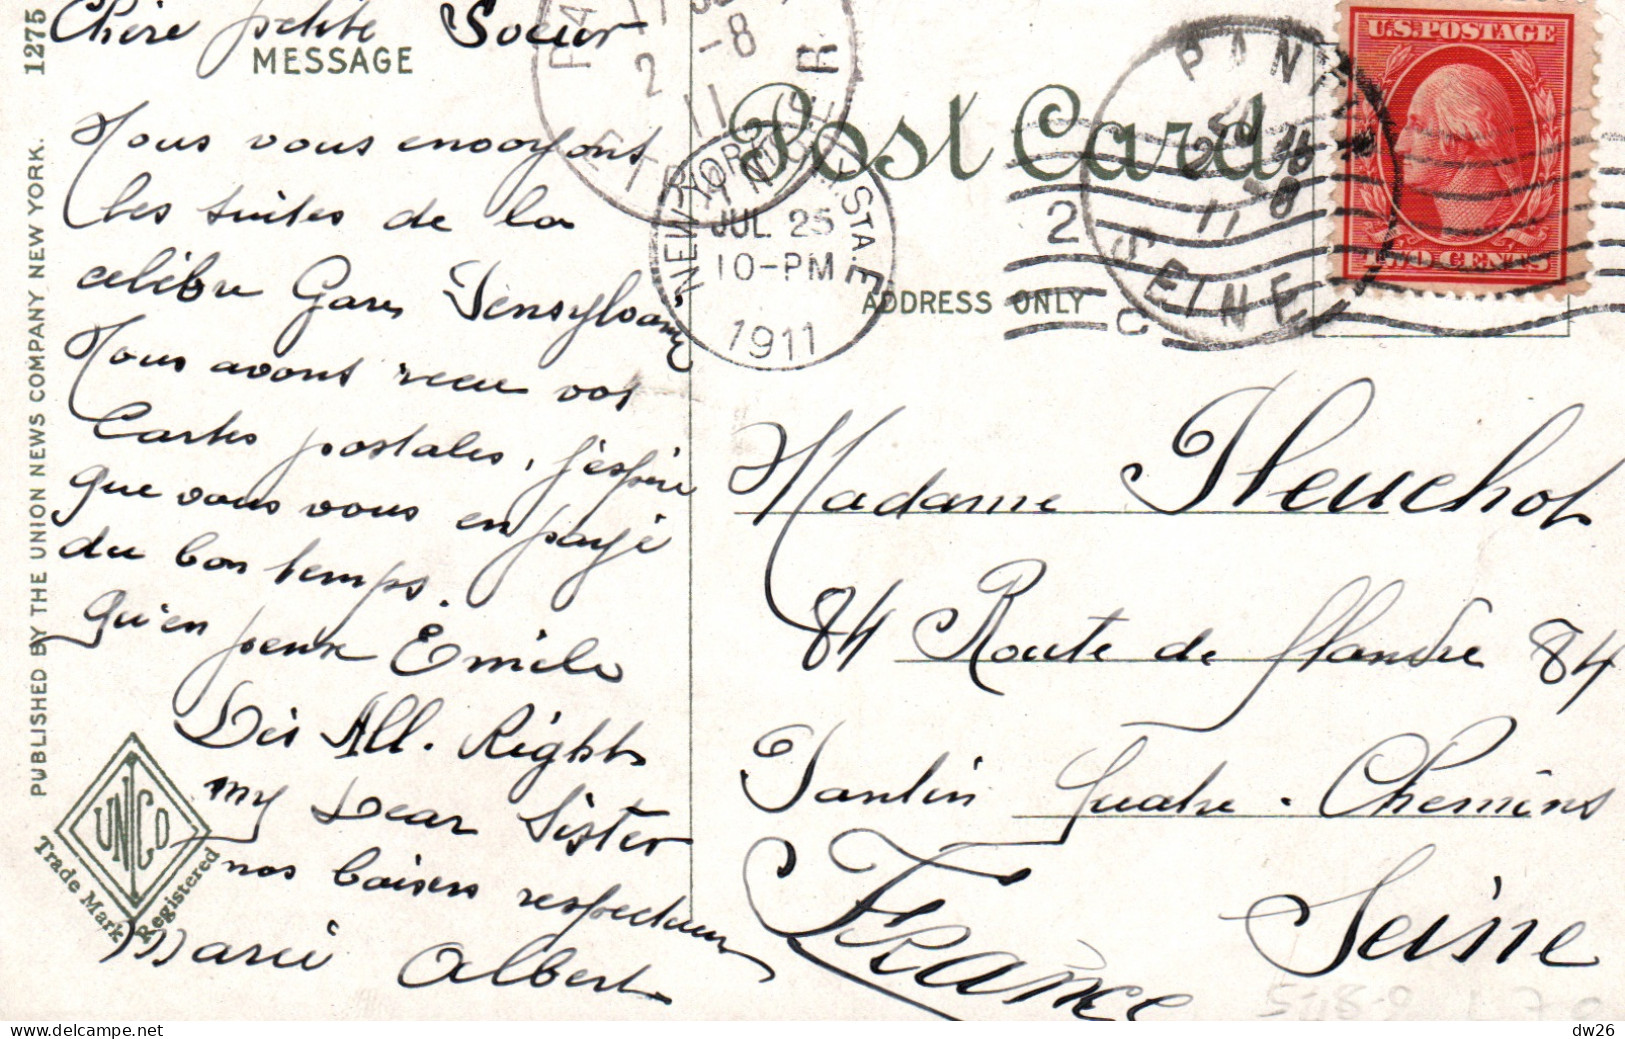 Chère petite Soeur
MESSAGE
Nous vous envoyons
les suites de la
célèbre Gare Pensylvany
Nous avons recu vos
Cartes postales, j'éspère
que vous vous en payé
du bon temps.
qu'en pense Emile
Dis All. Right
my Dear Sister
nos baisers respectueux
Marie Albert
1275
PUBLISHED BY THE UNION NEWS COMPANY NEW YORK.
UNCO
Trade Mark Registered
Post Card
ADDRESS ONLY
NEW YORK, N.Y. STA. E
JUL 25
10-PM
1911
2
PANTIN
SEINE
11
-8
U.S. POSTAGE
TWO CENTS
Madame Fleuchot
84 Route de Flandre 84
Pantin Quatre-Chemins
Seine
France
dw26